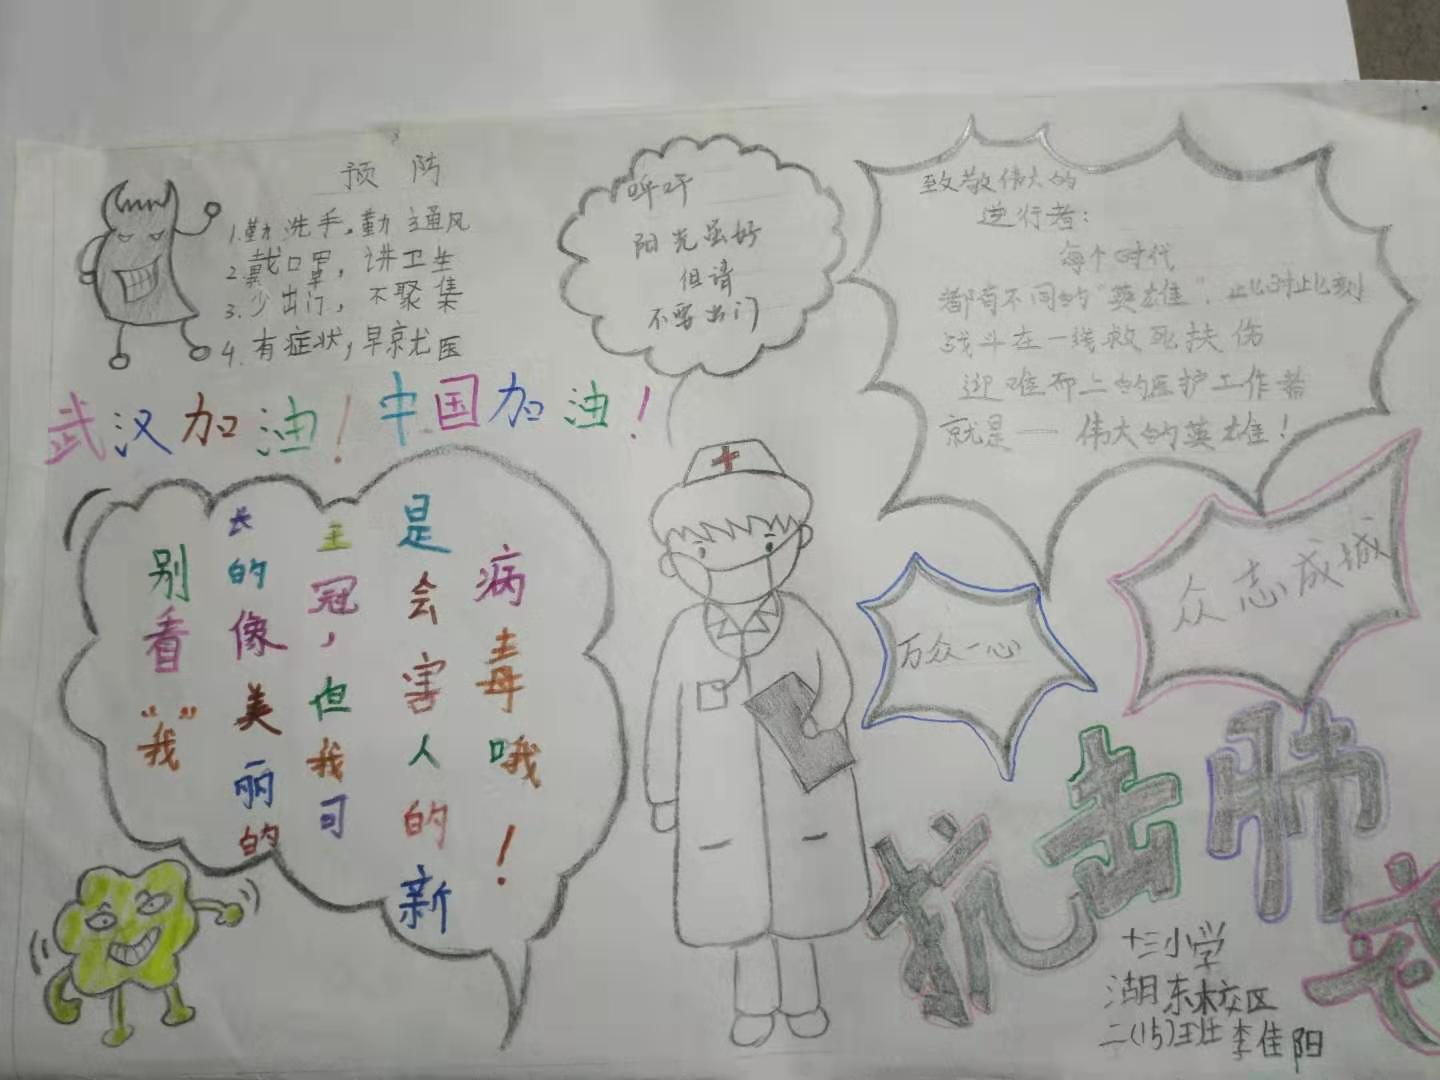 预防
1.勤洗手,勤通风
2.戴口罩,讲卫生
3.少出门,不聚集
4.有症状,早就医
武汉加油!中国加油!
阳光虽好
但请
不要出门
致敬伟大的
逆行者:
每个时代
都有不同的“英雄”,此时此刻
战斗在一线救死扶伤
迎难而上的医护工作者
就是——伟大的英雄!
别看“我”
长的像美丽的
王冠,但我可
是会害人的新
病毒哦!
万众一心
众志成城
抗击肺炎
十三小学
湖东校区
二(15)班李佳阳